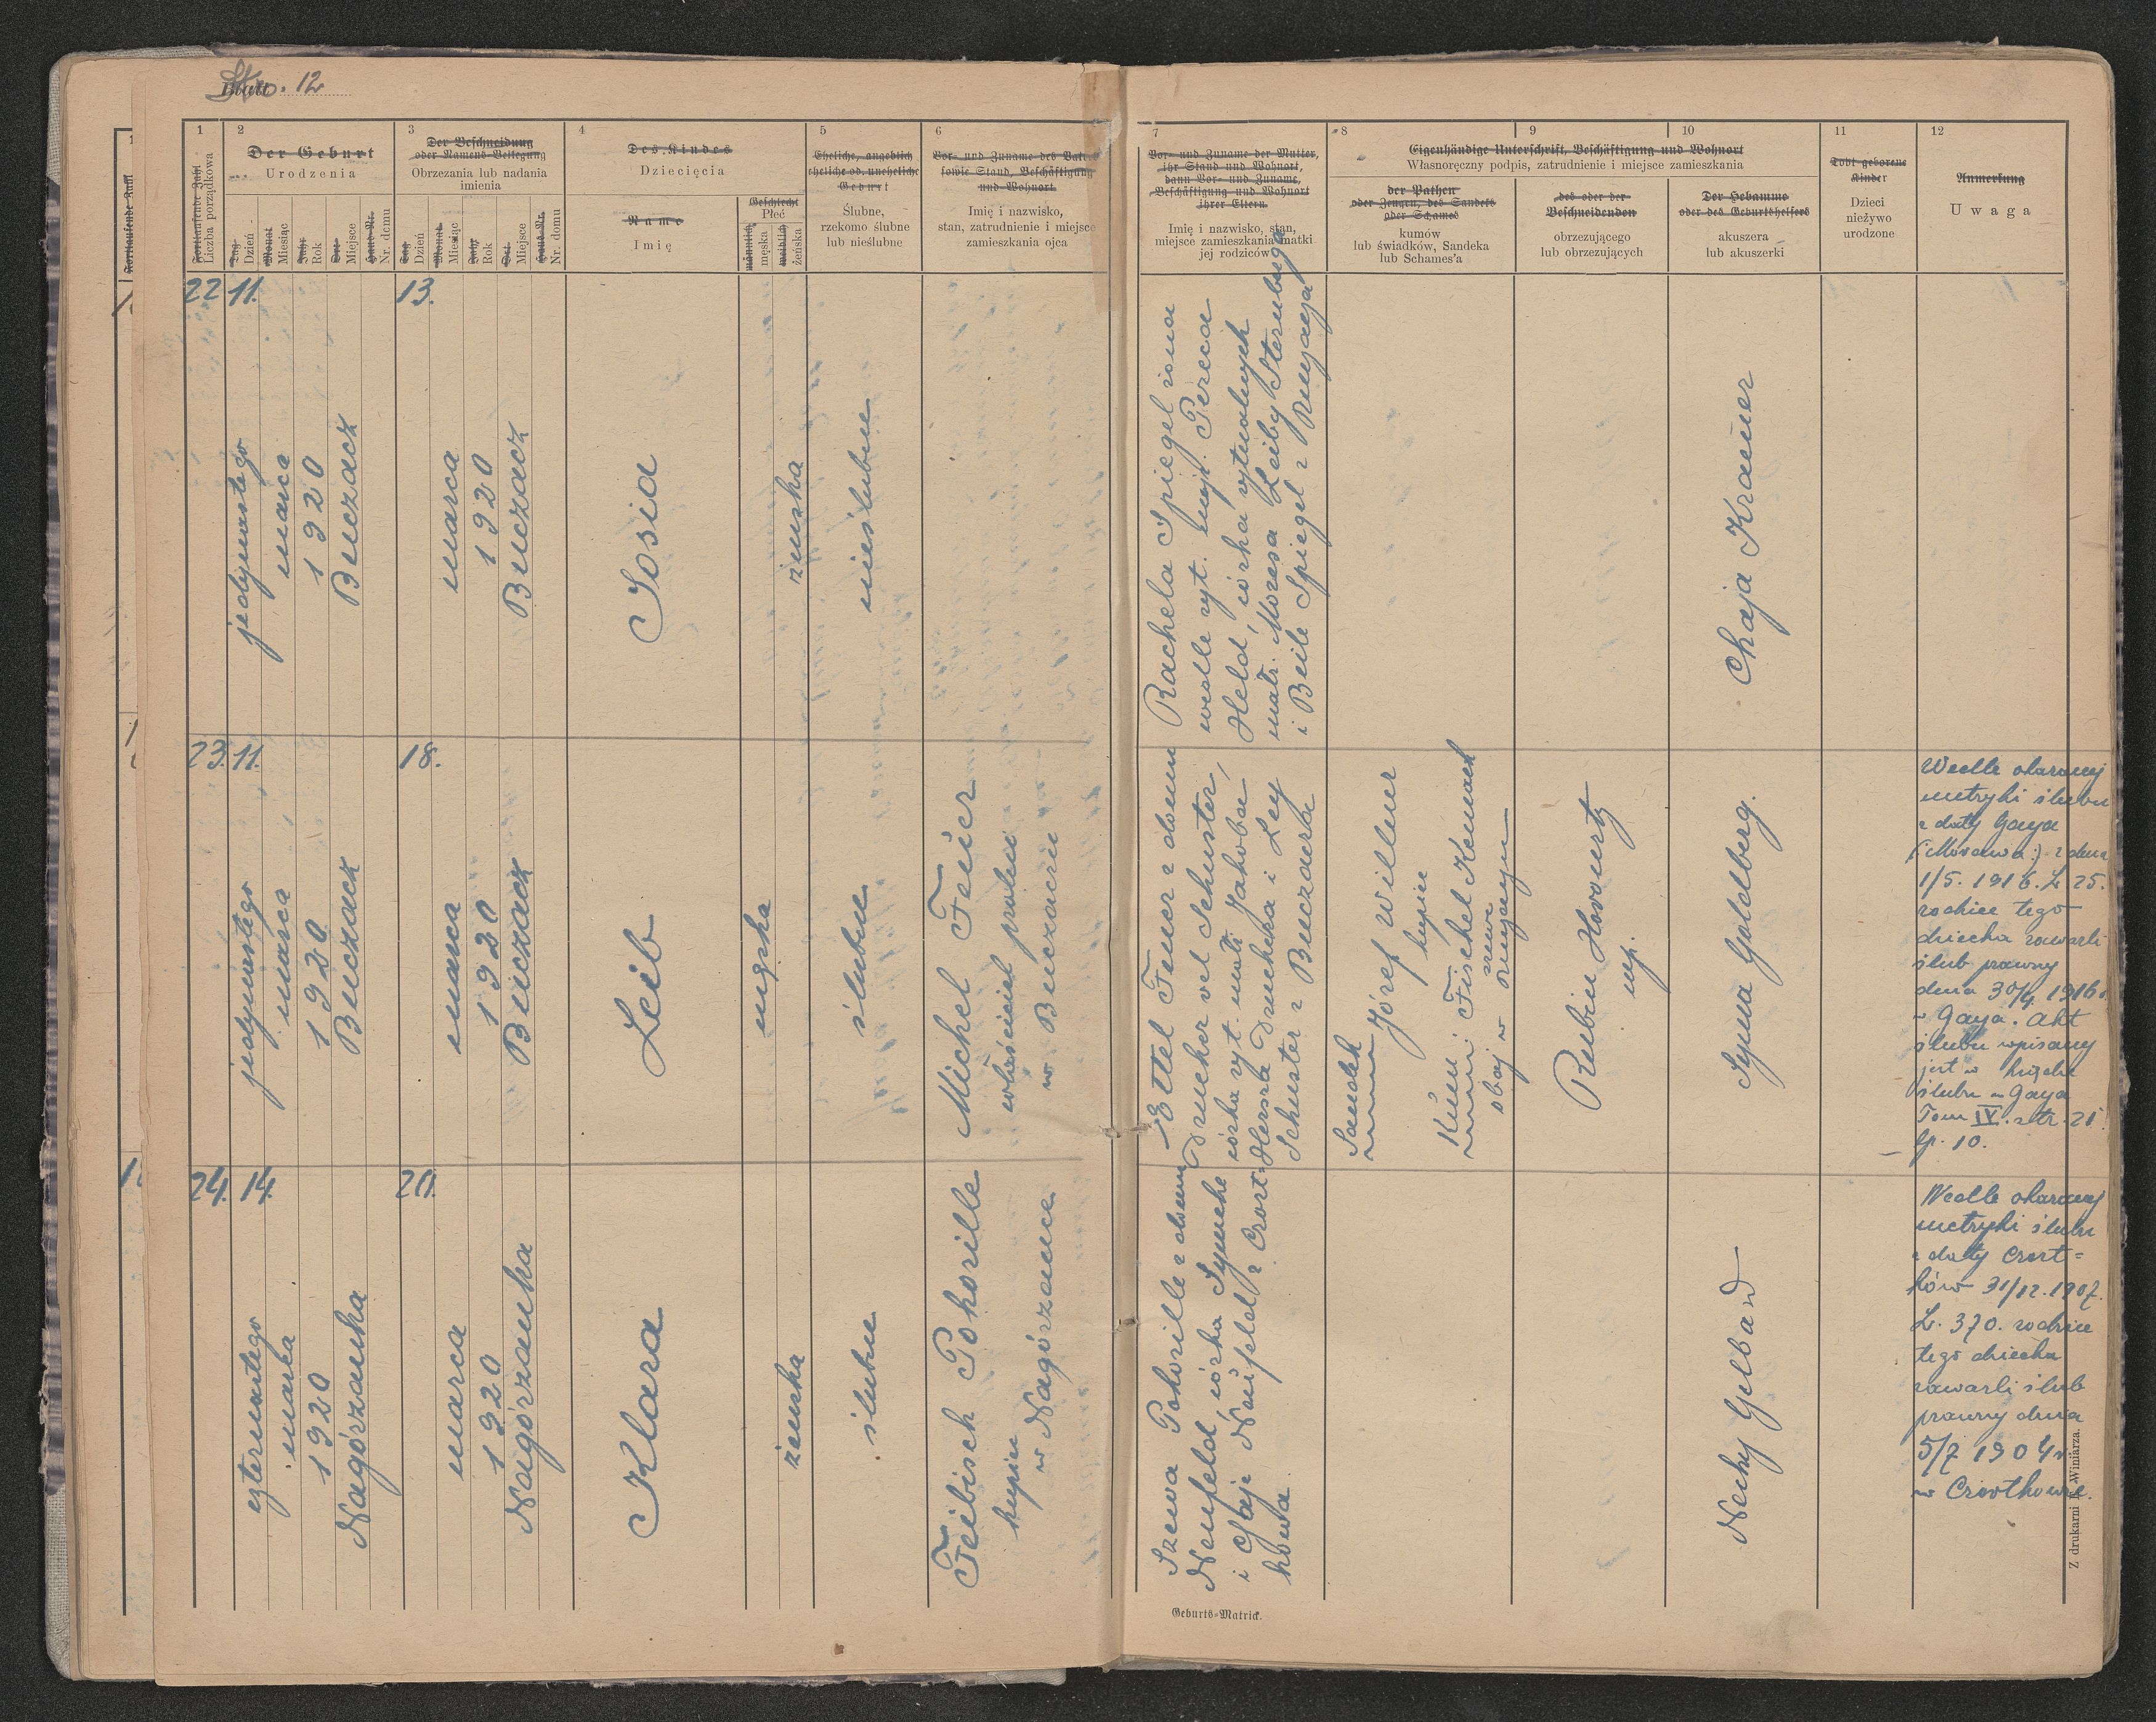 Stro. 12
1
2
Der Geburt
Urodzenia
3
Der Beschneidung
oder Namens-Beilegung
Obrzezania lub nadania
imienia
4
Des Kindes
Dziecięcia
5
Eheliche, angeblich
eheliche od. uneheliche
Geburt
Ślubne,
rzekomo ślubne
lub nieślubne
6
Vor- und Zuname des Vaters
sowie Stand, Beschäftigung
und Wohnort
Imię i nazwisko,
stan, zatrudnienie i miejsce
zamieszkania ojca
Fortlaufende Zahl
Liczba porządkowa
Tag
Dzień
Monat
Miesiąc
Jahr
Rok
Ort
Miejsce
Haus-Nr.
Nr. domu
Tag
Dzień
Monat
Miesiąc
Jahr
Rok
Ort
Miejsce
Haus-Nr.
Nr. domu
Name
Imię
Geschlecht
Płeć
männlich
męska
weiblich
żeńska
7
Vor- und Zuname der Mutter,
ihr Stand und Wohnort,
dann Vor- und Zuname,
Beschäftigung und Wohnort
ihrer Eltern
Imię i nazwisko, stan,
miejsce zamieszkania matki
jej rodziców
8
9
10
Eigenhändige Unterschrift, Beschäftigung und Wohnort
Własnoręczny podpis, zatrudnienie i miejsce zamieszkania
der Pathen
oder Zeugen, des Sandeks
oder Schames
kumów
lub świadków, Sandeka
lub Schames'a
des oder der
Beschneidenden
obrzezującego
lub obrzezujących
Der Hebamme
oder des Geburtshelfers
akuszera
lub akuszerki
11
Todt geborene
Kinder
Dzieci
nieżywo
urodzone
12
Anmerkung
Uwaga
22
11.
jedynastego
marca
1920
Buczacz
13.
marca
1920
Buczacz
Sosia
żeńska
nieślubne
Rachela Spiegel żona
wedle ryt. mojż. Pereca
Held, córka rytualnych
małż. Mozesa Leiby Sternberga
i Beile Spiegel z
Chaja Kramer
23.
11.
jedynastego
marca
1920
Buczacz
18.
marca
1920
Buczacz
Leib
męska
ślubne
Michel Feuer
właściciel
w Buczaczu
Ettel Feuer z domu
Drucker vel Schuster,
córka ryt. małż. Jakoba
Hersza Druckera i Ley
Schuster z Buczacza
Sandek
Józef Willner
kupiec
Kum: Fischel
obaj w
Rubin Horowitz
mp.
Syma Goldberg.
Wedle okazanej
metryki ślubu
z daty Gaya
(:Morawa:) z dnia
1/5. 1916. L 25.
rodzice tego
dziecka zawarli
ślub prawny
dnia 30/4 1916 r.
w Gaya. Akt
ślubu wpisany
jest w księdze
ślubu w Gaya
Tom IV. str. 21.
lp. 10.
24.
14.
czternastego
marca
1920
Nagórzanka
20.
marca
1920
Nagórzanka
Klara
żeńska
ślubne
Feibisch Pohorille
kupiec
w Nagórzance
Szewa Pohorille z domu
Neufeld, córka Symche
i Chaje Neufeld z Czort=
kowa
Nechy Gelband
Wedle okazanej
metryki ślubu
z daty Czort=
ków 31/12. 1907.
L. 370. rodzice
tego dziecka
zawarli ślub
prawny dnia
5/7 1904 r.
w Czortkowie.
Geburts-Matrick.
Z drukarni E. Winiarza.